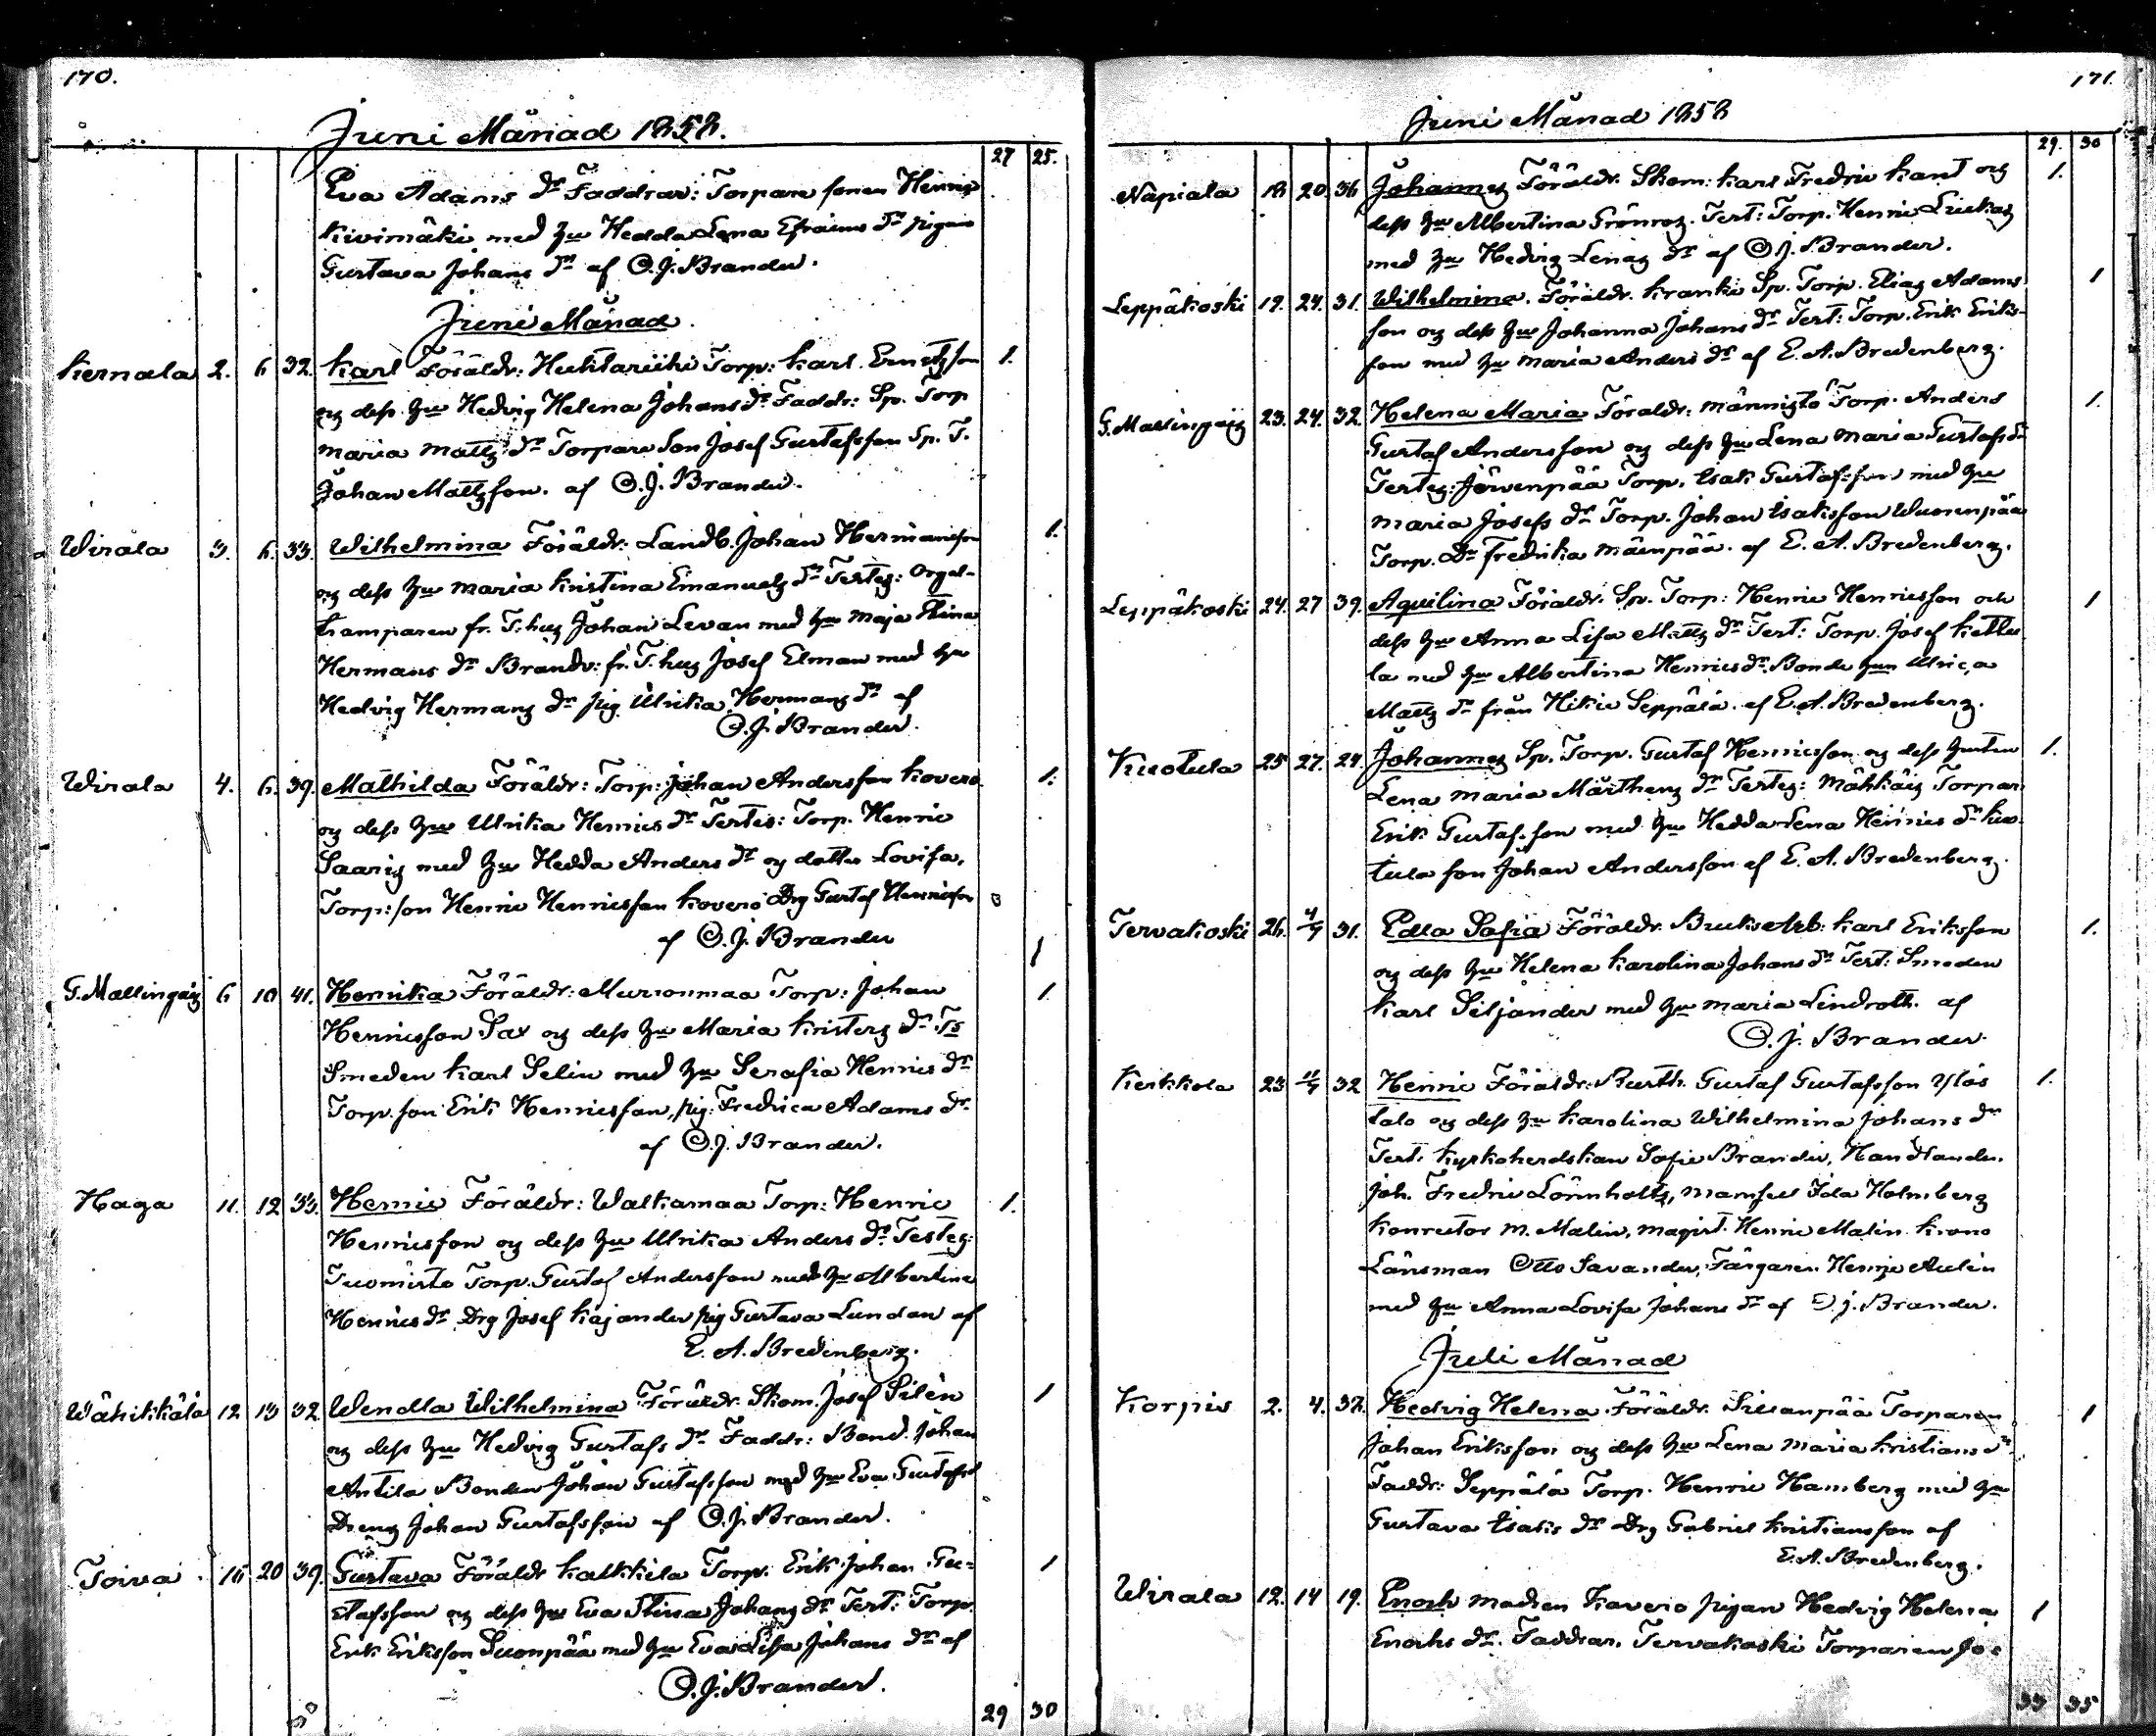 170.
Juni Månad 1858.
27 25.
Eva Adams dr Faddrar: Torpare sonen Henric
Kivimäki med hu Hedda Lena Efraims dr pigan
Gustava Johans dr af O.J. Brander.
Juni Månad.
Kernala 2. 6 32. Karl Föräldr: Huhtariihi Torp: Karl Ernstsson 1.
og dess hu Hedvig Helena Johans dr Faddr: Sp. Torp
Maria Matts dr Torpare Son Josef Gustafsson Sp. T.
Johan Mattsson. af O.J. Brander.
Wirala 3. 6. 33. Wilhelmina Föräldr: Landb. Johan Hermansson 1.
og dess hu Maria Kristina Emanuels dr Testes: Orgel-
tramparen fr. T.hus Johan Levan med hu Maja Stina
Hermans dr Brandv: fr. T.hus Josef Elman med hu
Hedvig Hermans dr pig Ulrika Hermans dr af
O.J. Brander.
Wirala 4. 6. 39. Mathilda Föräldr: Torp: Johan Andersson Kovero 1.
og dess hu Ulrika Henrics dr Testes: Torp. Henric
Saaris med hu Hedda Anders dr og dotter Lovisa,
Torp: son Henric Henricsson Kovero Drg Gustaf Henricsson
af O.J. Brander
1
G. Mallingais 6 10 41. Henrika Föräldr: Murronmaa Torp: Johan 1.
Henricsson Sax og dess hu Maria Kristers dr Ts
Smeden Karl Selin med hu Serafia Henrics dr
Torp. son Erik Henricsson, pig: Fredrica Adams dr.
af O.J. Brander.
Haga 11. 12 33. Henric Föräldr: Walkamaa Torp: Henric 1.
Henricsson og dess hu Ulrika Anders dr Testes:
Tuomisto Torp. Gustaf Andersson med hu Albertina
Henrics dr Drg Josef Kajander pig Gustava Lundan af
E.A. Bredenberg.
Wähikkälä 12 13 32. Wendla Wilhelmina Föräldr. Skom. Josef Silén 1
og dess hu Hedvig Gustafs dr Faddr: Bond. Johan
Antila Bonden Johan Gustafsson med hu Eva Gustafsd
Dreng Johan Gustafsson af O.J. Brander.
Toiva 16 20 39. Gustava Föräldr Kalkkila Torp. Erik Johan Gu= 1
stafsson og dess hu Eva Stina Johans dr Test: Torp.
Erik Eriksson Suonpää med hu Eva Lisa Johans dr af
O.J. Brander.
29 30
171.
Juni Månad 1858
29. 30
Napiala 18 20. 36 Johannes Föräldr. Skom: Karl Fredric Kant og 1.
dess hu Albertina Grönros. Test: Torp. Henric Luckas
med hu Hedvig Lenas dr af O.J. Brander.
Leppäkoski 19. 24. 31. Wilhelmina. Föräldr. Kranki Sp. Torp. Elias Adams 1
son og dess hu Johanna Johans dr Test: Torp. Erik Eriks-
son med hu Maria Anders dr af E.A. Bredenberg.
G. Mallingais 23. 24. 32. Helena Maria Föräldr: Männistö Torp. Anders 1.
Gustaf Andersson og dess hu Lena Maria Gustafs dr
Testes: Järvenpää Torp. Isak Gustafsson med hu
Maria Josefs dr Torp. Johan Isaksson Wuorenpää
Torp. Dr Fredrika Mäenpää. af E.A. Bredenberg.
Leppäkoski 24. 27 39. Aquilina Föräldr. Sp. Torp: Henric Henricsson och 1
dess hu Anna Lisa Matts dr Test: Torp. Josef Kettu
la med hu Albertina Henrics dr Bonde hun Ulrica
Matts dr från Hikie Seppälä. af E.A. Bredenberg.
Kuotula 25 27. 29. Johannes Sp. Torp. Gustaf Henricsson og dess hustru 1.
Lena Maria Mårthens dr Testes: Mähkäis Torpar.
Erik Gustafsson med hu Hedda Lena Henrics dr Kuo-
tula son Johan Andersson af E.A. Bredenberg.
Tervakoski 26. 4/7 31. Edla Sofia Föräldr. Bruks Arb: Karl Eriksson 1.
og dess hu Helena Karolina Johans dr Test: Smeden
Karl Siljander med hu Maria Lindroth. af
O.J. Brander.
Kerkkola 23 11/7 32 Henric Föräldr: Rusth. Gustaf Gustafsson Ylös 1.
talo og dess hu Karolina Wilhelmina Johans dr
Test. Kyrkoherdskan Sofie Brander, Handlanden
Joh. Fredric Lönnholtz, Mamsell Ida Holmberg
Konrector M. Malin, Magist. Henric Malin Krono
Länsman Otto Savander, Färgaren Henric Aulin
med hu Anna Lovisa Johans dr af O.J. Brander.
Juli Månad
Korpis 2. 4. 32. Hedvig Helena Föräldr. Siiranpää Torparen 1
Johan Eriksson og dess hu Lena Maria Kristians dr
Faddr: Seppälä Torp. Henric Hamberg med hu
Gustava Isaks dr Drg Gabriel Kristiansson af
E.A. Bredenberg.
Wirala 12. 14 19. Enoch Modren Kavero pigan Hedvig Helena 1
Enochs dr. Faddrar. Tervakoski Torparen Jo=
33 35